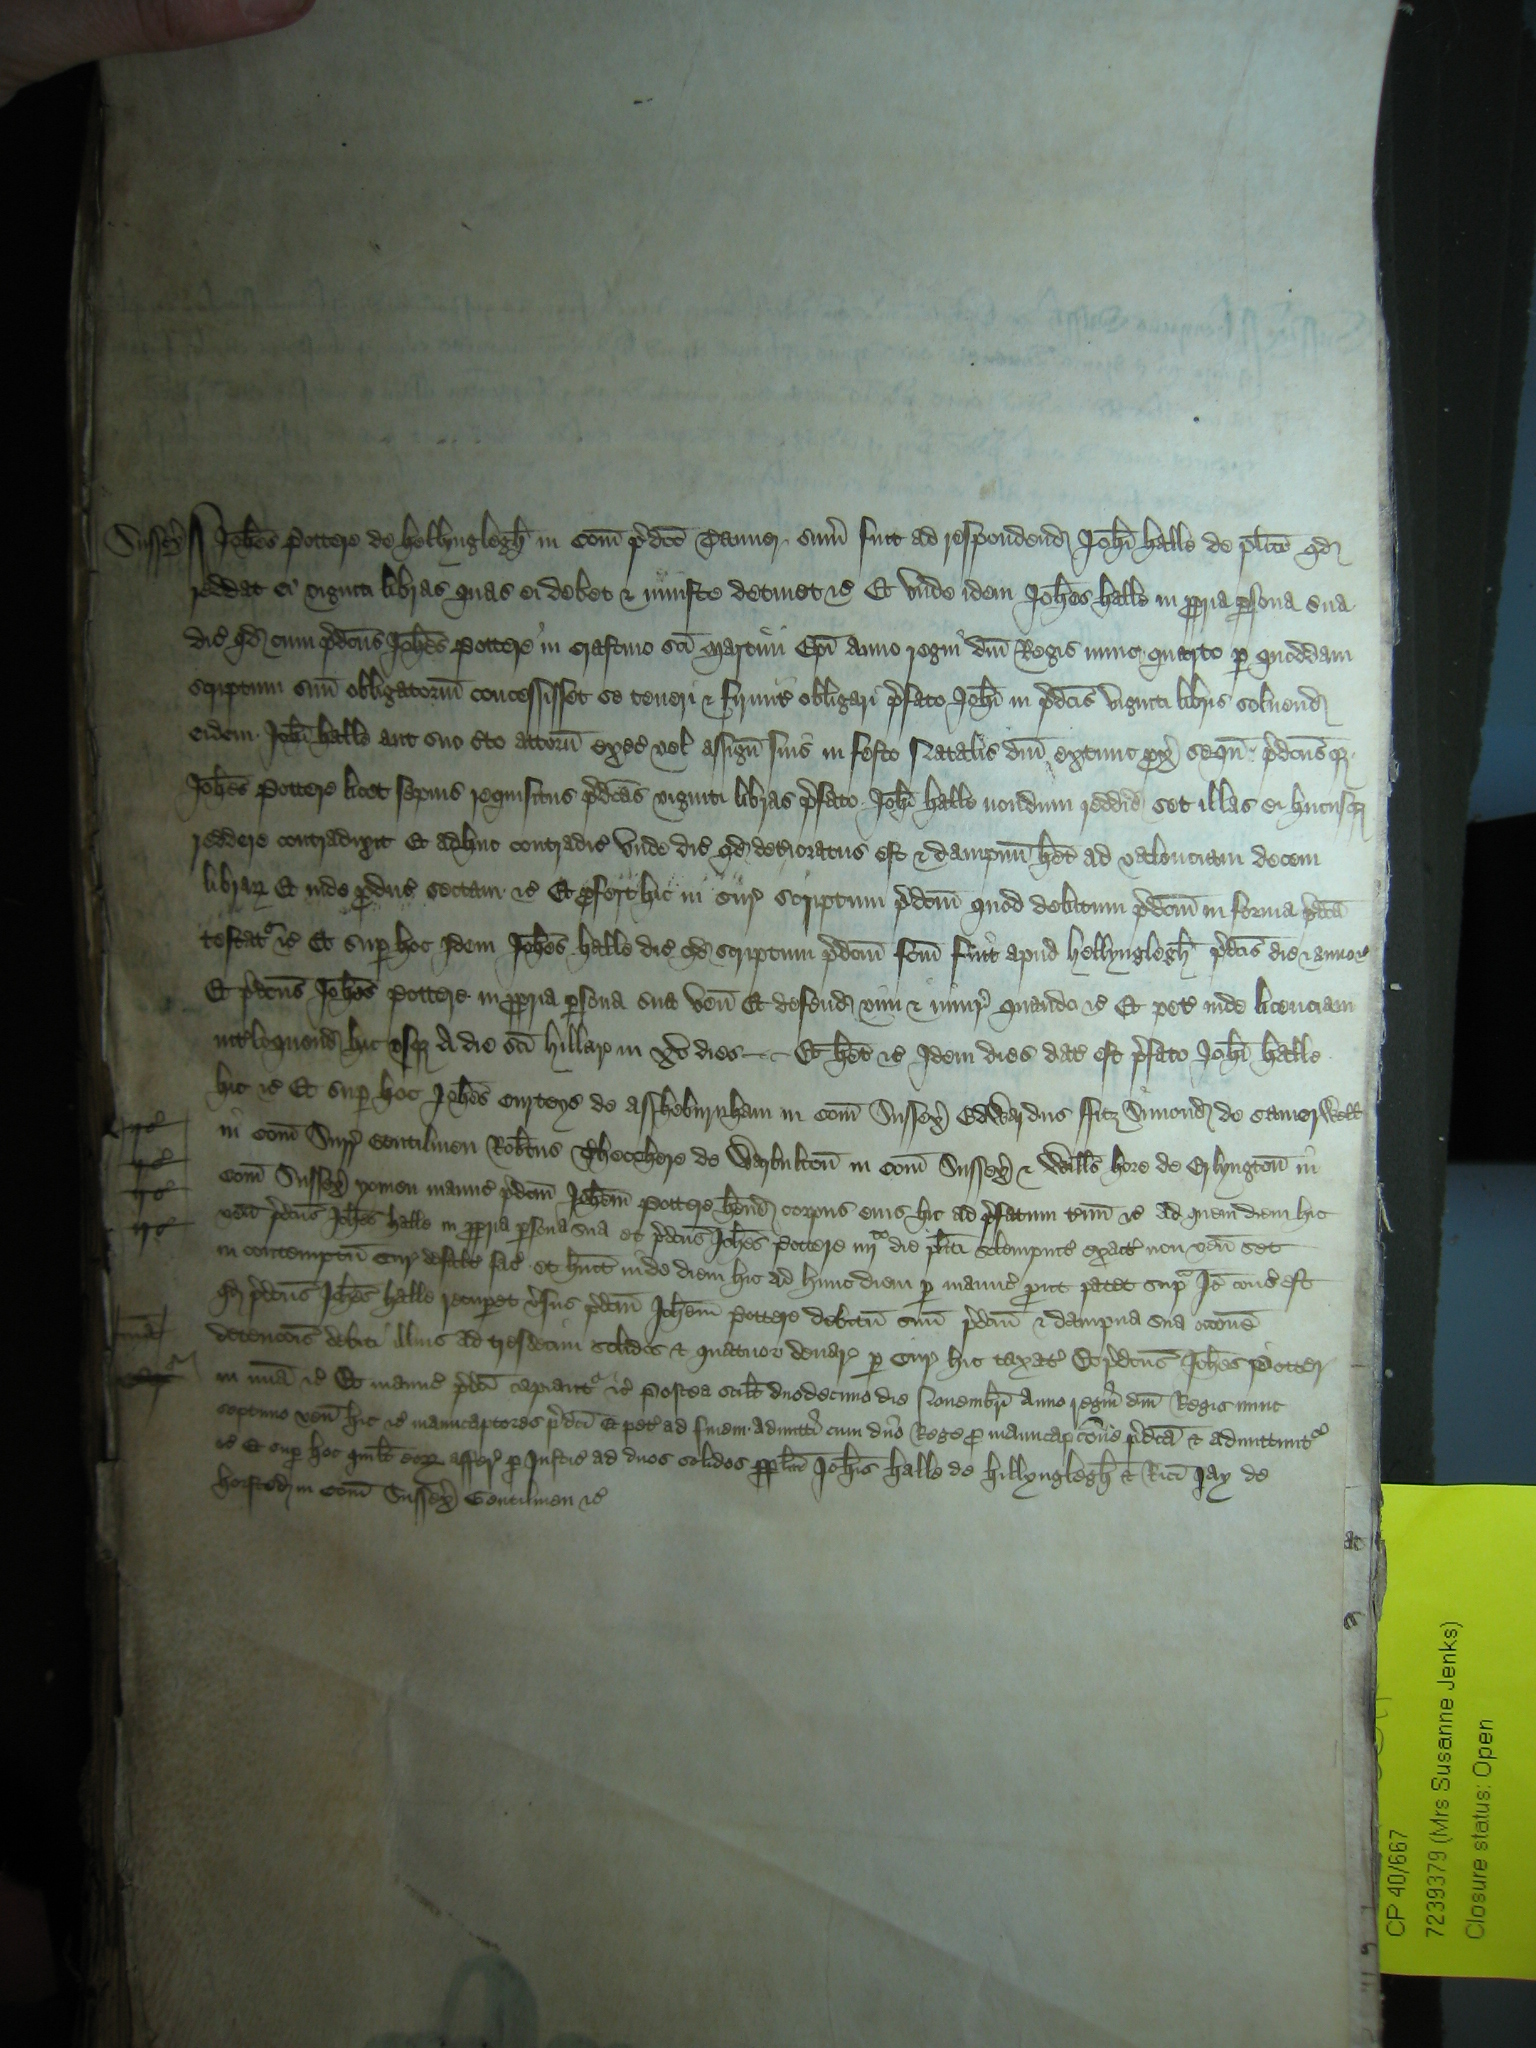 Sussex̄ Joħes Pottere de hellynglegh in Com̄ p̄dc̄o Tanner sum̄ fuit ad respondend Joħi halle de pl̄ito qd
reddat ei viginti libras quas ei debet & iniuste detinet &c̄ Et vnde idem Joħes halle in ppria psona sua
dic̄ qd cum p̄dc̄us Joħes Pottere in crastino sc̄i Martini Ep̄i Anno regni dn̄i Regis nunc quarto p quoddam
scriptum suū obligatoriū concessisset se teneri & firmit̄ obligari p̄fato Joħi in p̄dc̄is viginti libris soluend
eidem Joħi halle aut suo c̄to attorn̄ exec̄ vel assign̄ suis in festo Natalis dn̄i extunc px̄ seqū p̄dc̄usq
Joħes Pottere licet sepius requisitus p̄dc̄as viginti libras p̄fato Joħi halle nondum reddid set illas ei hucusq
reddere contradixit Et adhuc contradic̄ vnde dic̄ qd deterioratus est & dampnū het ad valenciam decem
librar Et inde pduc̄ sectam &c̄ Et pfert hic in Cur scriptum p̄dc̄m quod debitum p̄dc̄m in forma p̄dc̄a
testat' &c̄ Et sup hoc idem Joħes halle dic̄ qd scriptum p̄dc̄m fc̄m fuit apud hellynglegh p̄dc̄is die & anno &c̄
Et p̄dc̄us Joħes Pottere in ppria psona sua ven̄ Et defend vim & iniur quando &c̄ Et pet̄ inde licenciam
int̄loquend hic vsq A die sc̄i hillar in xv dies Et het &c̄ Idem dies dat̄ est p̄fato Joħi halle
hic &c̄ Et sup hoc Joħes Curteys de Assheburnham in Com̄ Sussex̄ Edwardus ffitz Simond de Camerwell
in Com̄ Surr Gentilmen Rob̄tus Thecchere de Warbulton̄ in Com̄ Sussex̄ & Will̄s hore de Erlyngton̄ in
Com̄ Sussex̄ yomen manuc̄ p̄dc̄m Joħem Pottere hend corpus eius hic ad p̄fatum t̄min̄ &c̄ ad quem diem hic
ven̄ p̄dc̄us Joħes halle in ppria psona sua et p̄dc̄us Joħes Pottere iiij^to die pl̄iti solempnit̄ exact̄ non ven̄ set
in contemptū Cur defalt̄ fac̄ et hūit inde diem hic ad hunc diem p manuc̄ put patet sup^a Jō cons̄ est
qd p̄dc̄us Joħes halle recupet v̄sus p̄dc̄m Joħem Pottere debitū suū p̄dc̄m & dampna sua occōne
detencōis debiti illius ad tresdecim solidos & quatuor denar p Cur hic taxat̄ Et p̄dc̄us Joħes Potter
in mīa &c̄ Et manuc̄ p̄dc̄i capiant' &c̄ Postea scil̄t duodecimo die Nouembr Anno regni dn̄i Regis nunc
septimo ven̄ hic &c̄ manucaptores p̄dc̄i Et pet̄ ad finem admitti cum dn̄o Rege p manucapcōne p̄dc̄a & admittunt'
&c̄ Et sup hoc quil̄t eor assess̄ p Justic̄ ad duos solidos p pl̄m Joħis halle de hillynglegh & Ric̄i Jay de
horsted in Com̄ Sussex̄ Gentilmen &c̄
CP 40/667
7239379 (Mrs Susanne Jenks)
Closure status: Open